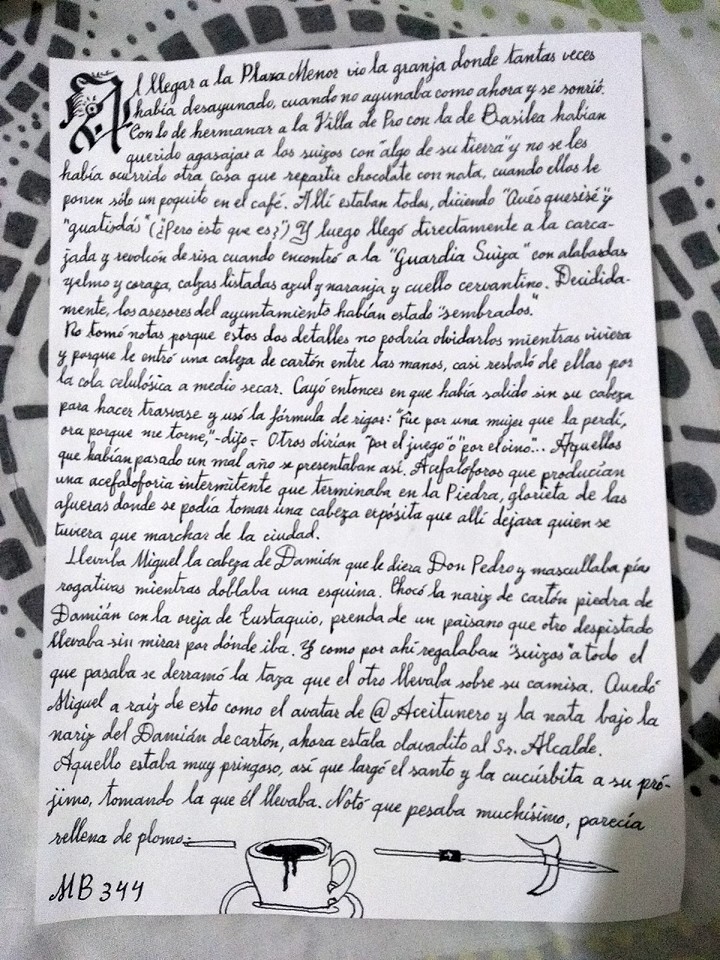 Al llegar a la Plaza Menor vio la granja donde tantas veces
había desayunado, cuando no ayunaba como ahora y se sonrió.
Con lo de hermanar a la Villa de Pro con la de Basilea habían
querido agasajar a los suizos con "algo de su tierra" y no se les
había ocurrido otra cosa que repartir chocolate con nata, cuando ellos le
ponen sólo un poquito en el café. Allí estaban todos, diciendo "Qués quesisé" y
"guatisdás" (¿¡Pero esto que es?") Y luego llegó directamente a la carca-
jada y revolcón de risa cuando encontró a la "Guardia Suiza" con alabardas
yelmo y coraza, calzas listadas azul y naranja y cuello cervantino. Decidida-
mente, los asesores del ayuntamiento habían estado "sembrados."
No tomó notas porque estos dos detalles no podría olvidarlos mientras viviera
y porque le entró una cabeza de cartón entre las manos, casi resbaló de ellas por
la cola celulósica a medio secar. Cayó entonces en que había salido sin su cabeza
para hacer trasvase y usó la fórmula de rigor: "Fue por una mujer que la perdí,
ora porque me torne,"-dijo-. Otros dirían "por el juego" o "por el vino"... Aquellos
que habían pasado un mal año se presentaban así. Acefalóforos que producían
una acefaloforia intermitente que terminaba en la Piedra, glorieta de las
afueras donde se podía tomar una cabeza expósita que allí dejara quien se
tuviera que marchar de la ciudad.
Llevaba Miguel la cabeza de Damián que le diera Don Pedro y mascullaba pías
rogativas mientras doblaba una esquina. Chocó la nariz de cartón piedra de
Damián con la oreja de Eustaquio, prenda de un paisano que otro despistado
llevaba sin mirar por dónde iba. Y como por ahí regalaban "suizos" a todo el
que pasaba se derramó la taza que el otro llevaba sobre su camisa. Quedó
Miguel a raíz de esto como el avatar de @Aceitunero y la nata bajo la
nariz del Damián de cartón, ahora estaba clavadito al Sr. Alcalde.
Aquello estaba muy pringoso, así que largó el santo y la cucúrbita a su pró-
jimo, tomando la que él llevaba. Notó que pesaba muchísimo, parecía
rellena de plomo.
MB 344